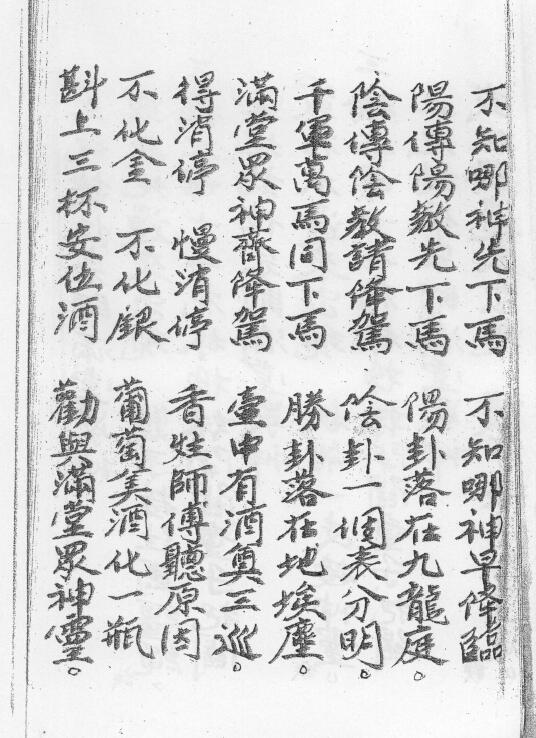 不知哪神先下馬　不知哪神早降臨
陽傳陽教先下馬　陽卦落在九龍庭。
陰傳陰教諸降駕　陰卦一個表分明。
千軍萬馬同下馬　勝卦落在地埃塵。
滿堂眾神齊降駕　壺中有酒奠三巡。
得消停　慢消停　香姓師傅聽原因
不化金　不化銀　葡萄美酒化一瓶
斟上三杯安位酒　勸與滿堂眾神靈。